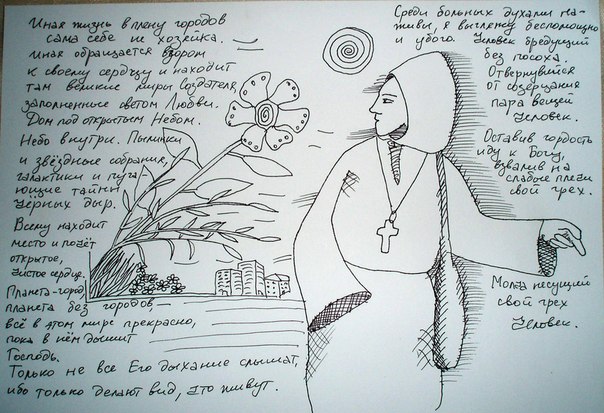 Иная жизнь в плену городов
сама себе не хозяйка.
Иная обращается взором
к своему сердцу и находит
там великие миры Создателя,
заполненные светом Любви.
Дом под открытым Небом.
Небо внутри. Пылинки
и звёздные собрания,
галактики и пуга-
ющие тайны
чёрных дыр.
Всему находит
место и поёт
открытое,
чистое сердце.
Планета-город,
планета без городов,
всё в этом мире прекрасно,
пока в нём дышит
Господь.
Только не все Его дыхание слышат,
ибо только делают вид, что живут.
Среди больных духами на-
живы, я выгляжу беспомощно
и убого. Человек бредущий
без посоха.
Отвернувшийся
от созерцания
пара вещей
Человек.
Оставив гордость
иду к Богу,
взвалив на
слабые плечи
свой грех.
Молча несущий
свой грех
Человек.